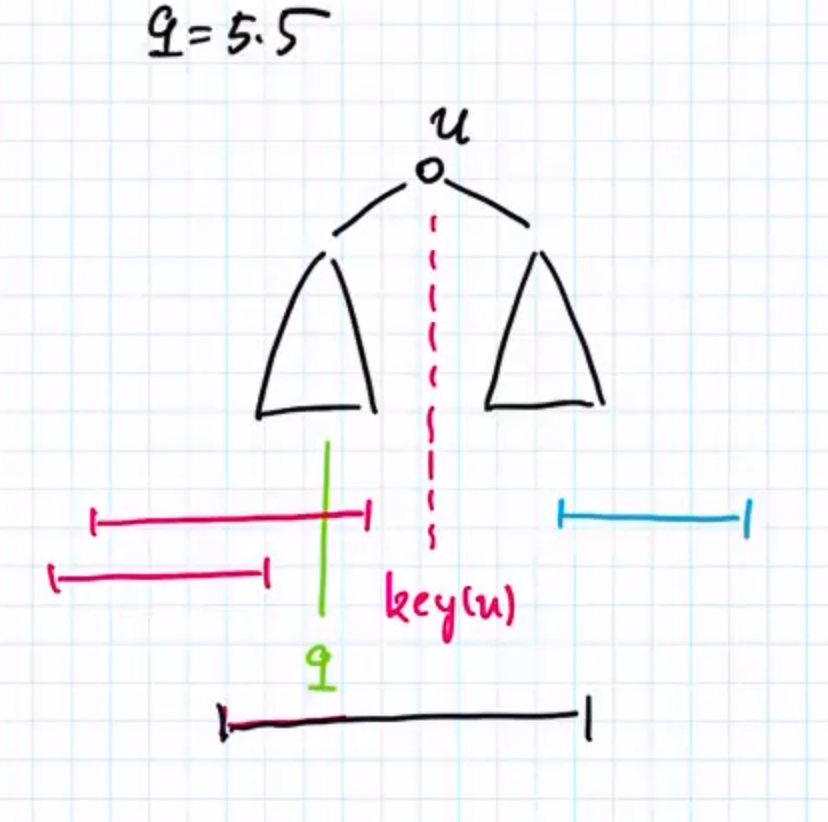 q = 5.5
u
key(u)
q